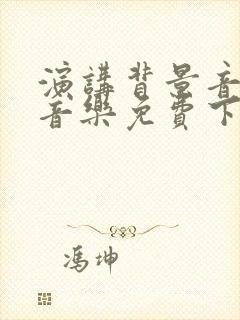 演講背景音
音樂免費下
馮坤